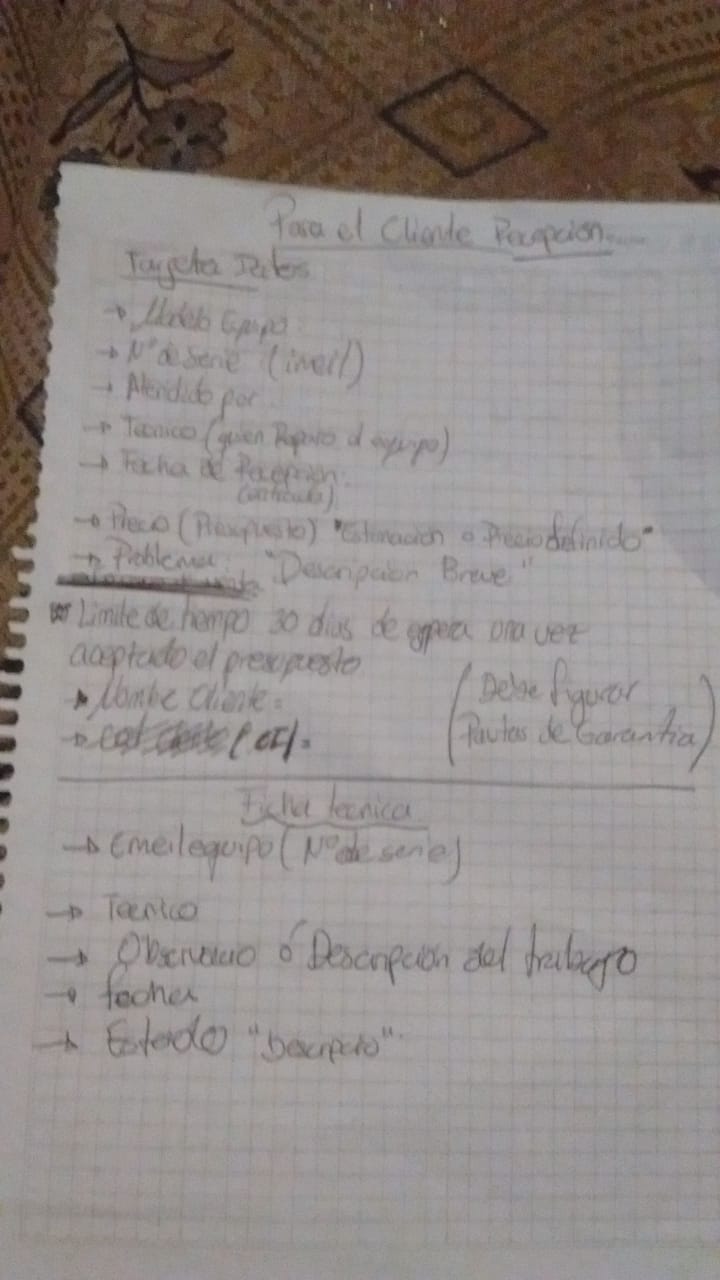 Para el Cliente Recepcion.....
Targeta Datos
→ Modelo Equipo:
→ N° de serie (imeil)
→ Atendido por
→ Tecnico (quien Reparo el equipo)
→ Fecha de Recepcion:
→ Precio (Presupuesto) "Estimacion o Precio definido"
→ Problema: "Descripcion Breve"
Limite de tiempo 30 dias de espera una vez
aceptado el presupuesto
→ Nombre Cliente:
(Debe figurar
Pautas de Garantia)
→ (CI):
Ficha tecnica
→ Emeil equipo (N° de serie)
→ Tecnico
→ Observacio ó Descripcion del trabajo
→ fecha
→ Estado "Descripcio"